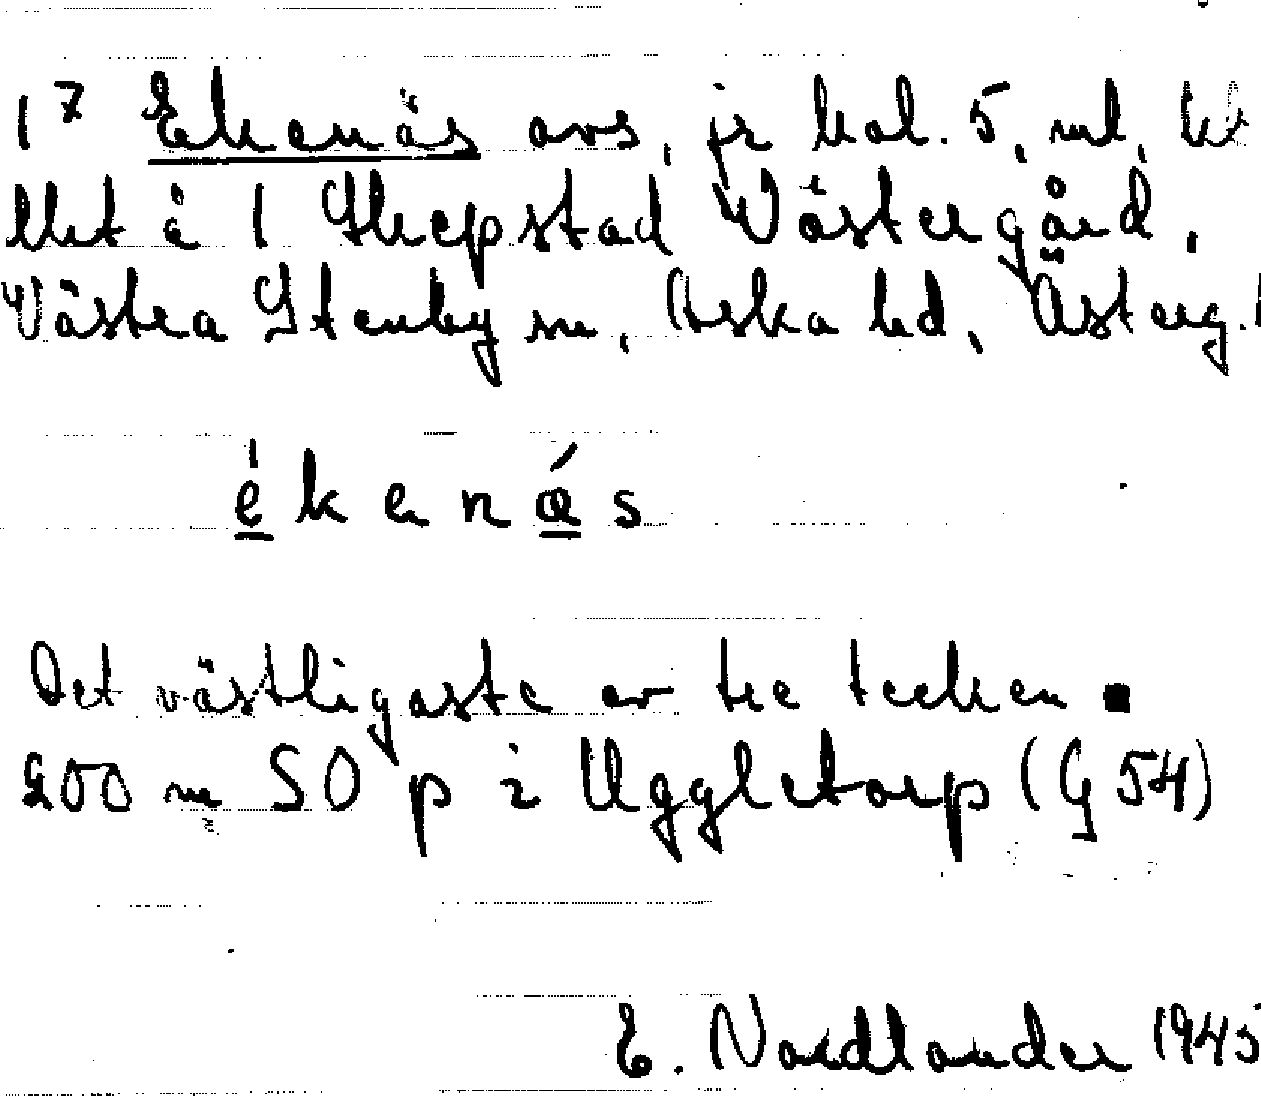 1⁷ Ekenäs avs, jr kol. 5, ml,
llet å 1 Skepstad Västergård,
Västra Stenby sn, Aska hd, Österg.l
ékenǽs
Det västligaste av tre tecken ■
200 m SO p i Uggletorp (G 54)
E. Nordlander 1945